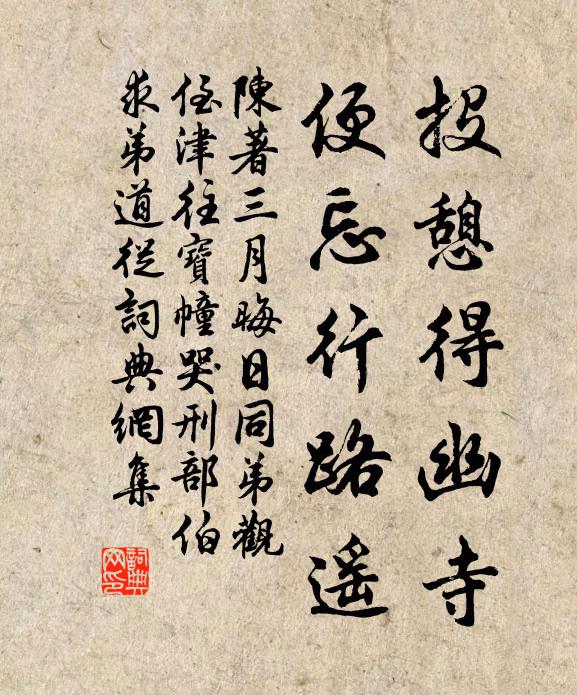 投憩得幽寺
便忘行路遥
陳著三月晦日同弟觀
侄津往寶幢哭刑部伯
求弟道從詞典網集
詞典网印